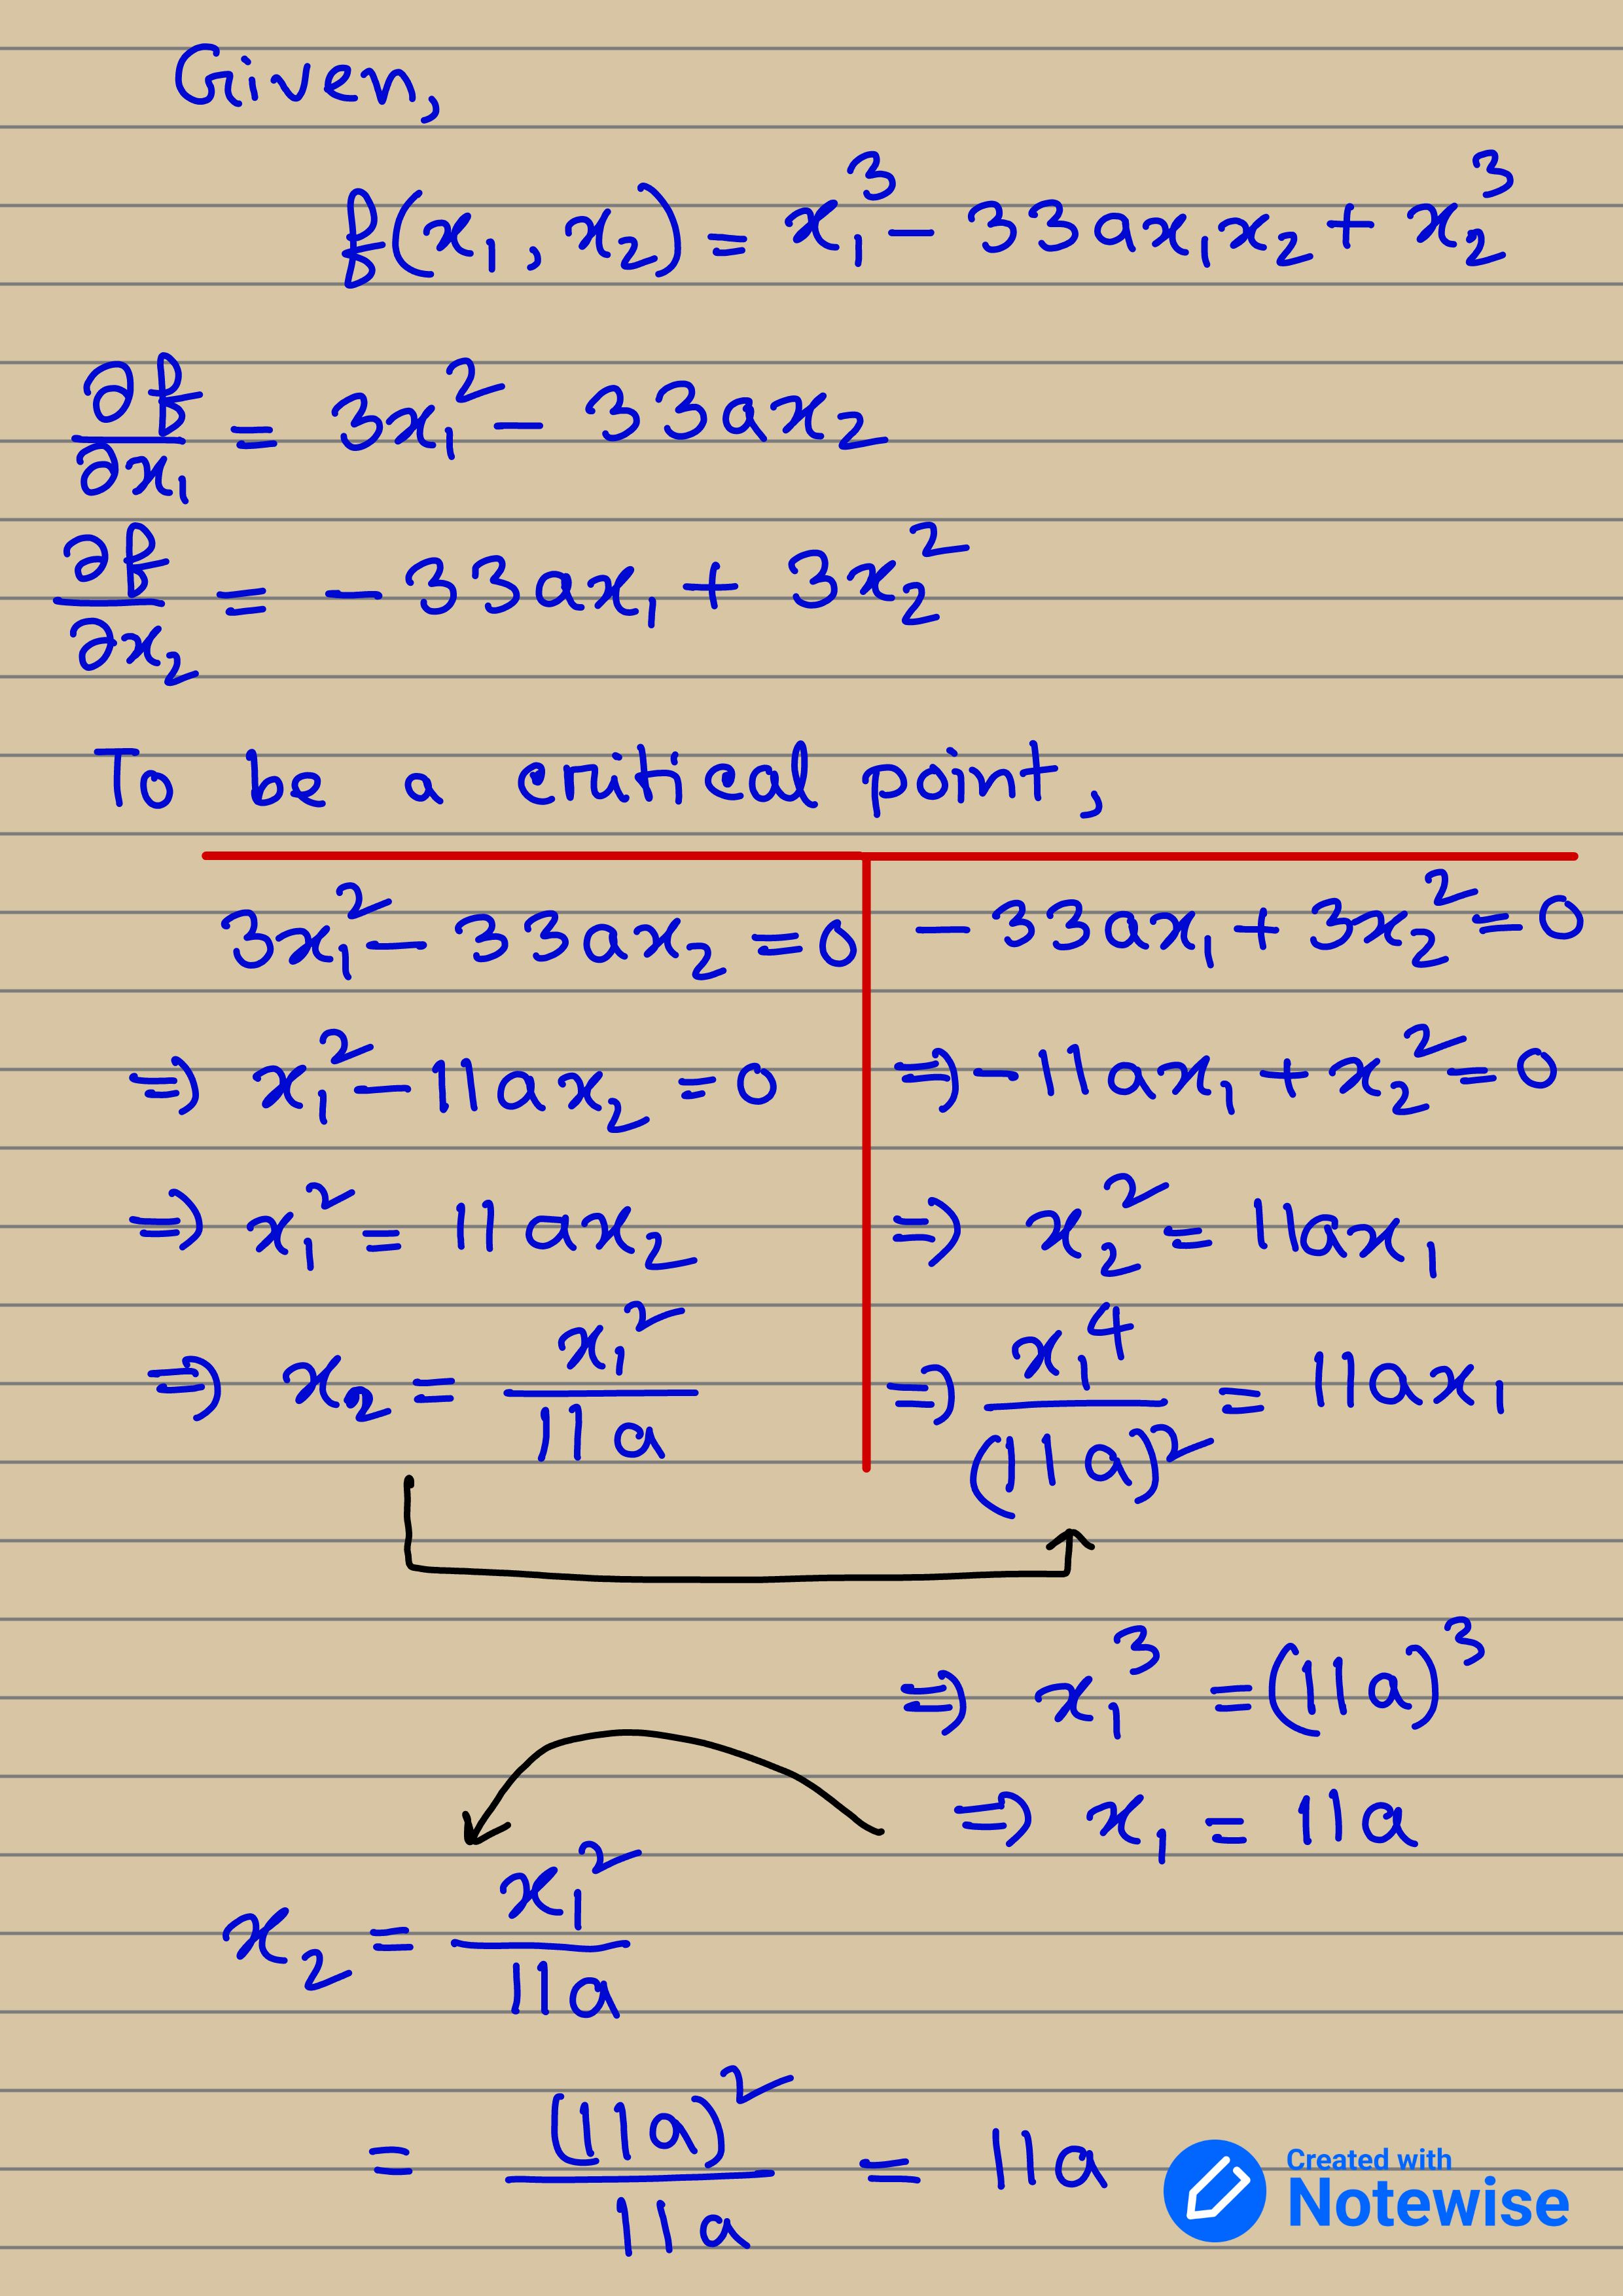 Given,
f(x₁, x₂) = x₁³ - 33ax₁x₂ + x₂³
∂f/∂x₁ = 3x₁² - 33ax₂
∂f/∂x₂ = - 33ax₁ + 3x₂²
To be a critical point,
3x₁² - 33ax₂ = 0
⇒ x₁² - 11ax₂ = 0
⇒ x₁² = 11ax₂
⇒ x₂ = x₁²/11a
- 33ax₁ + 3x₂² = 0
⇒ - 11ax₁ + x₂² = 0
⇒ x₂² = 11ax₁
⇒ x₁⁴/(11a)² = 11ax₁
⇒ x₁³ = (11a)³
⇒ x₁ = 11a
x₂ = x₁²/11a
= (11a)²/11a = 11a
Created with
Notewise